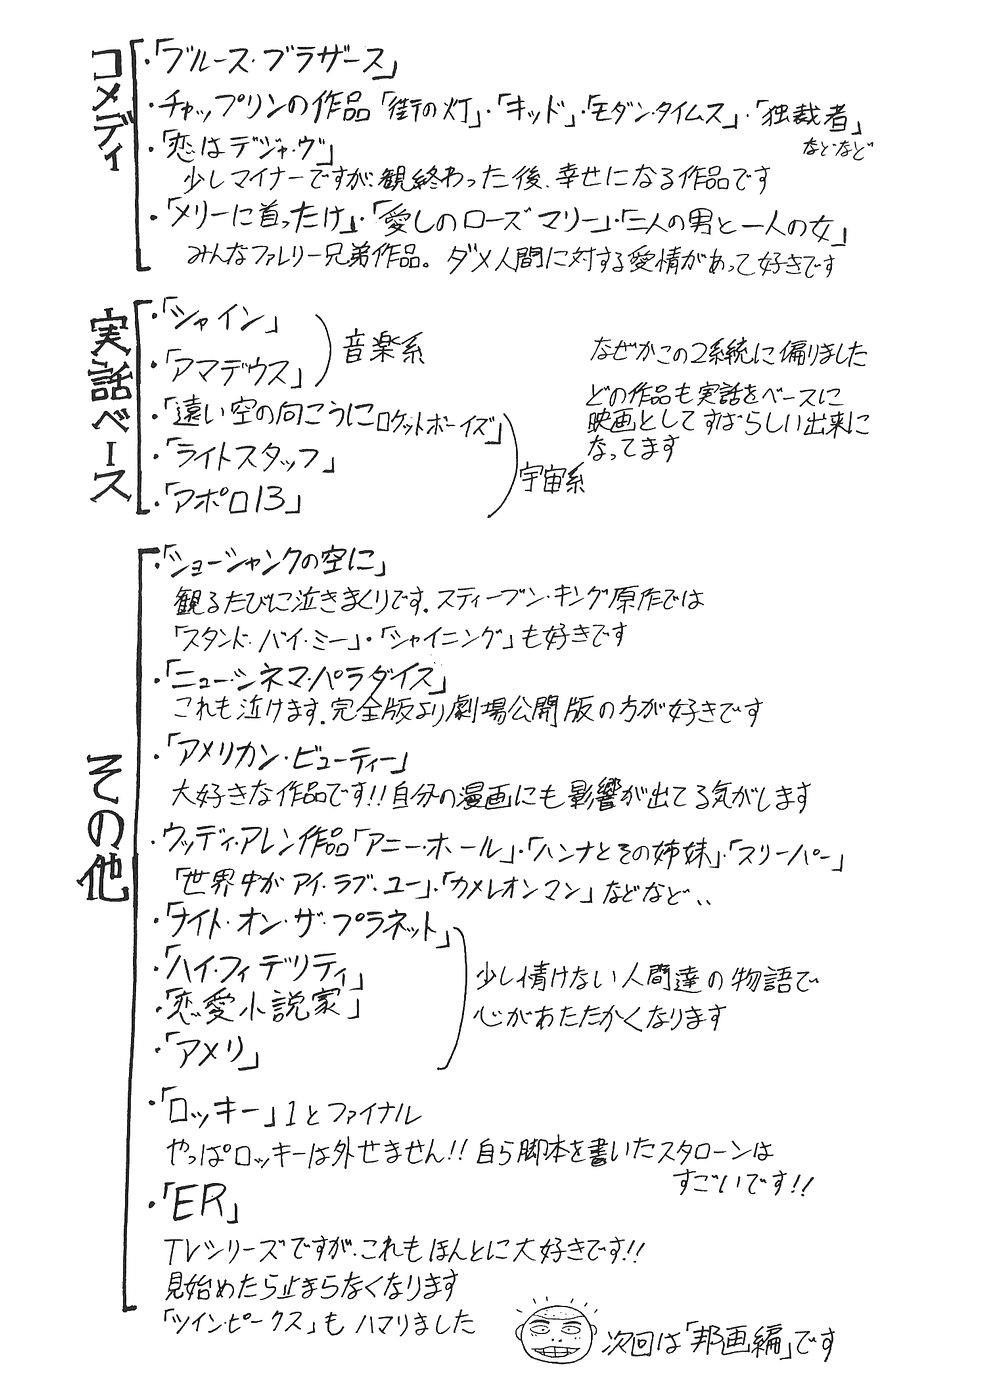 コメディ
・「ブルース・ブラザース」
・チャップリンの作品「街の灯」・「キッド」・「モダン・タイムス」・「独裁者」
などなど
・「恋はデジャ・ヴ」
少しマイナーですが、観終わった後、幸せになる作品です
・「メリーに首ったけ」・「愛しのローズマリー」・「二人の男と一人の女」
みんなファレリー兄弟作品。ダメ人間に対する愛情があって好きです
実話ベース
・「シャイン」
・「アマデウス」
音楽系
・「遠い空の向こうに ロケットボーイズ」
・「ライトスタッフ」
・「アポロ13」
宇宙系
なぜかこの2系統に偏りました
どの作品も実話をベースに
映画としてすばらしい出来に
なってます
その他
・「ショーシャンクの空に」
観るたびに泣きまくりです。スティーブン・キング原作では
「スタンド・バイ・ミー」・「シャイニング」も好きです
・「ニュー・シネマ・パラダイス」
これも泣けます。完全版より劇場公開版の方が好きです
・「アメリカン・ビューティー」
大好きな作品です!!自分の漫画にも影響が出てる気がします
・ウッディ・アレン作品「アニー・ホール」・「ハンナとその姉妹」・「スリーパー」
「世界中がアイ・ラブ・ユー」・「カメレオンマン」などなど・・
・「ナイト・オン・ザ・プラネット」
・「ハイ・フィデリティ」
・「恋愛小説家」
・「アメリ」
少し情けない人間達の物語で
心があたたかくなります
・「ロッキー」1とファイナル
やっぱロッキーは外せません!!自ら脚本を書いたスタローンは
すごいです!!
・「ER」
TVシリーズですが、これもほんとに大好きです!!
見始めたら止まらなくなります
「ツイン・ピークス」もハマりました
次回は「邦画編」です